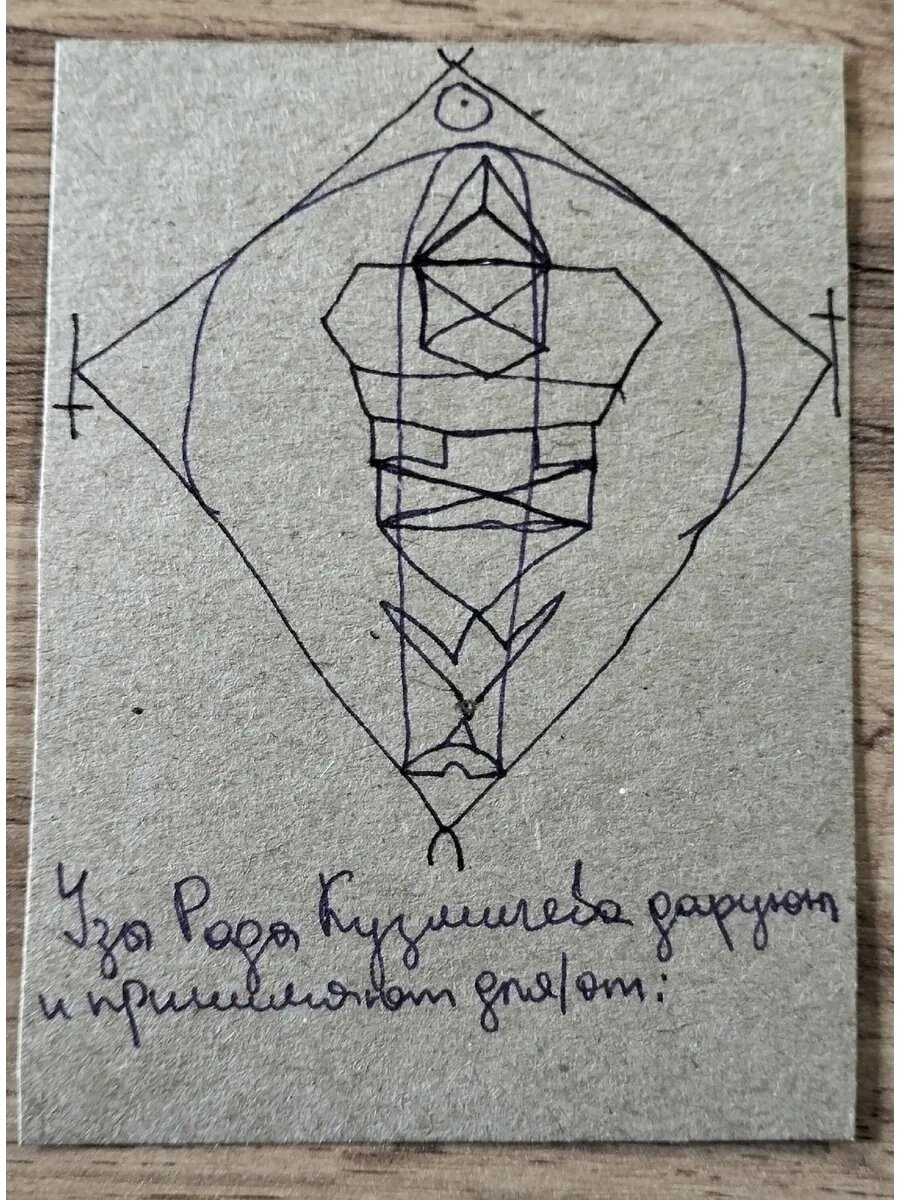 Узы Рода Кузмичева даруют
и принимают для/от: